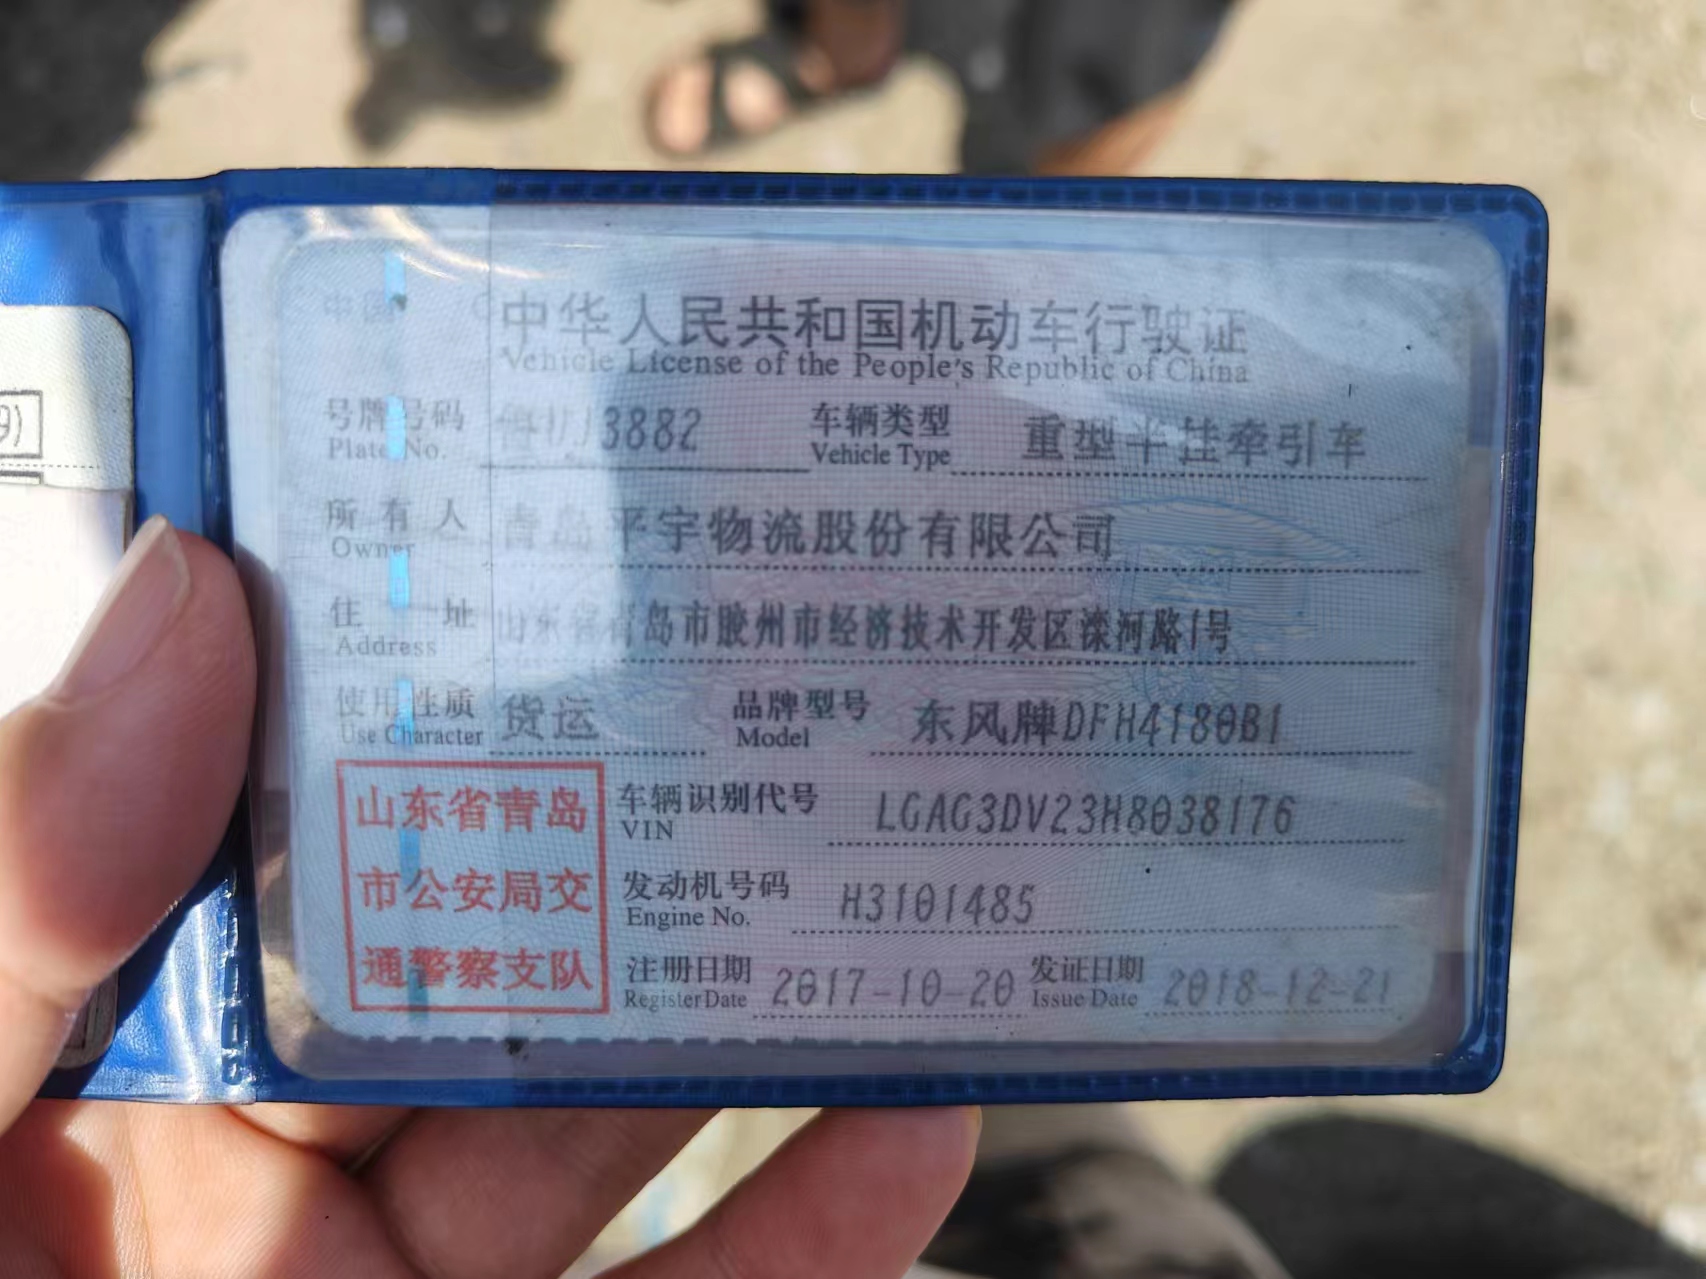 9)
中华人民共和国机动车行驶证
Vehicle License of the People's Republic of China
号牌号码 3882 车辆类型 重型半挂牵引车
Plate No. Vehicle Type
所有人 青岛平宇物流股份有限公司
Owner
住址 山东省青岛市胶州市经济技术开发区滦河路1号
Address
使用性质 货运 品牌型号 东风牌DFH4180B1
Use Character Model
山东省青岛
市公安局交
通警察支队
车辆识别代号 LGAG3DV23H8038176
VIN
发动机号码 H3101485
Engine No.
注册日期 2017-10-20 发证日期 2018-12-21
Register Date Issue Date